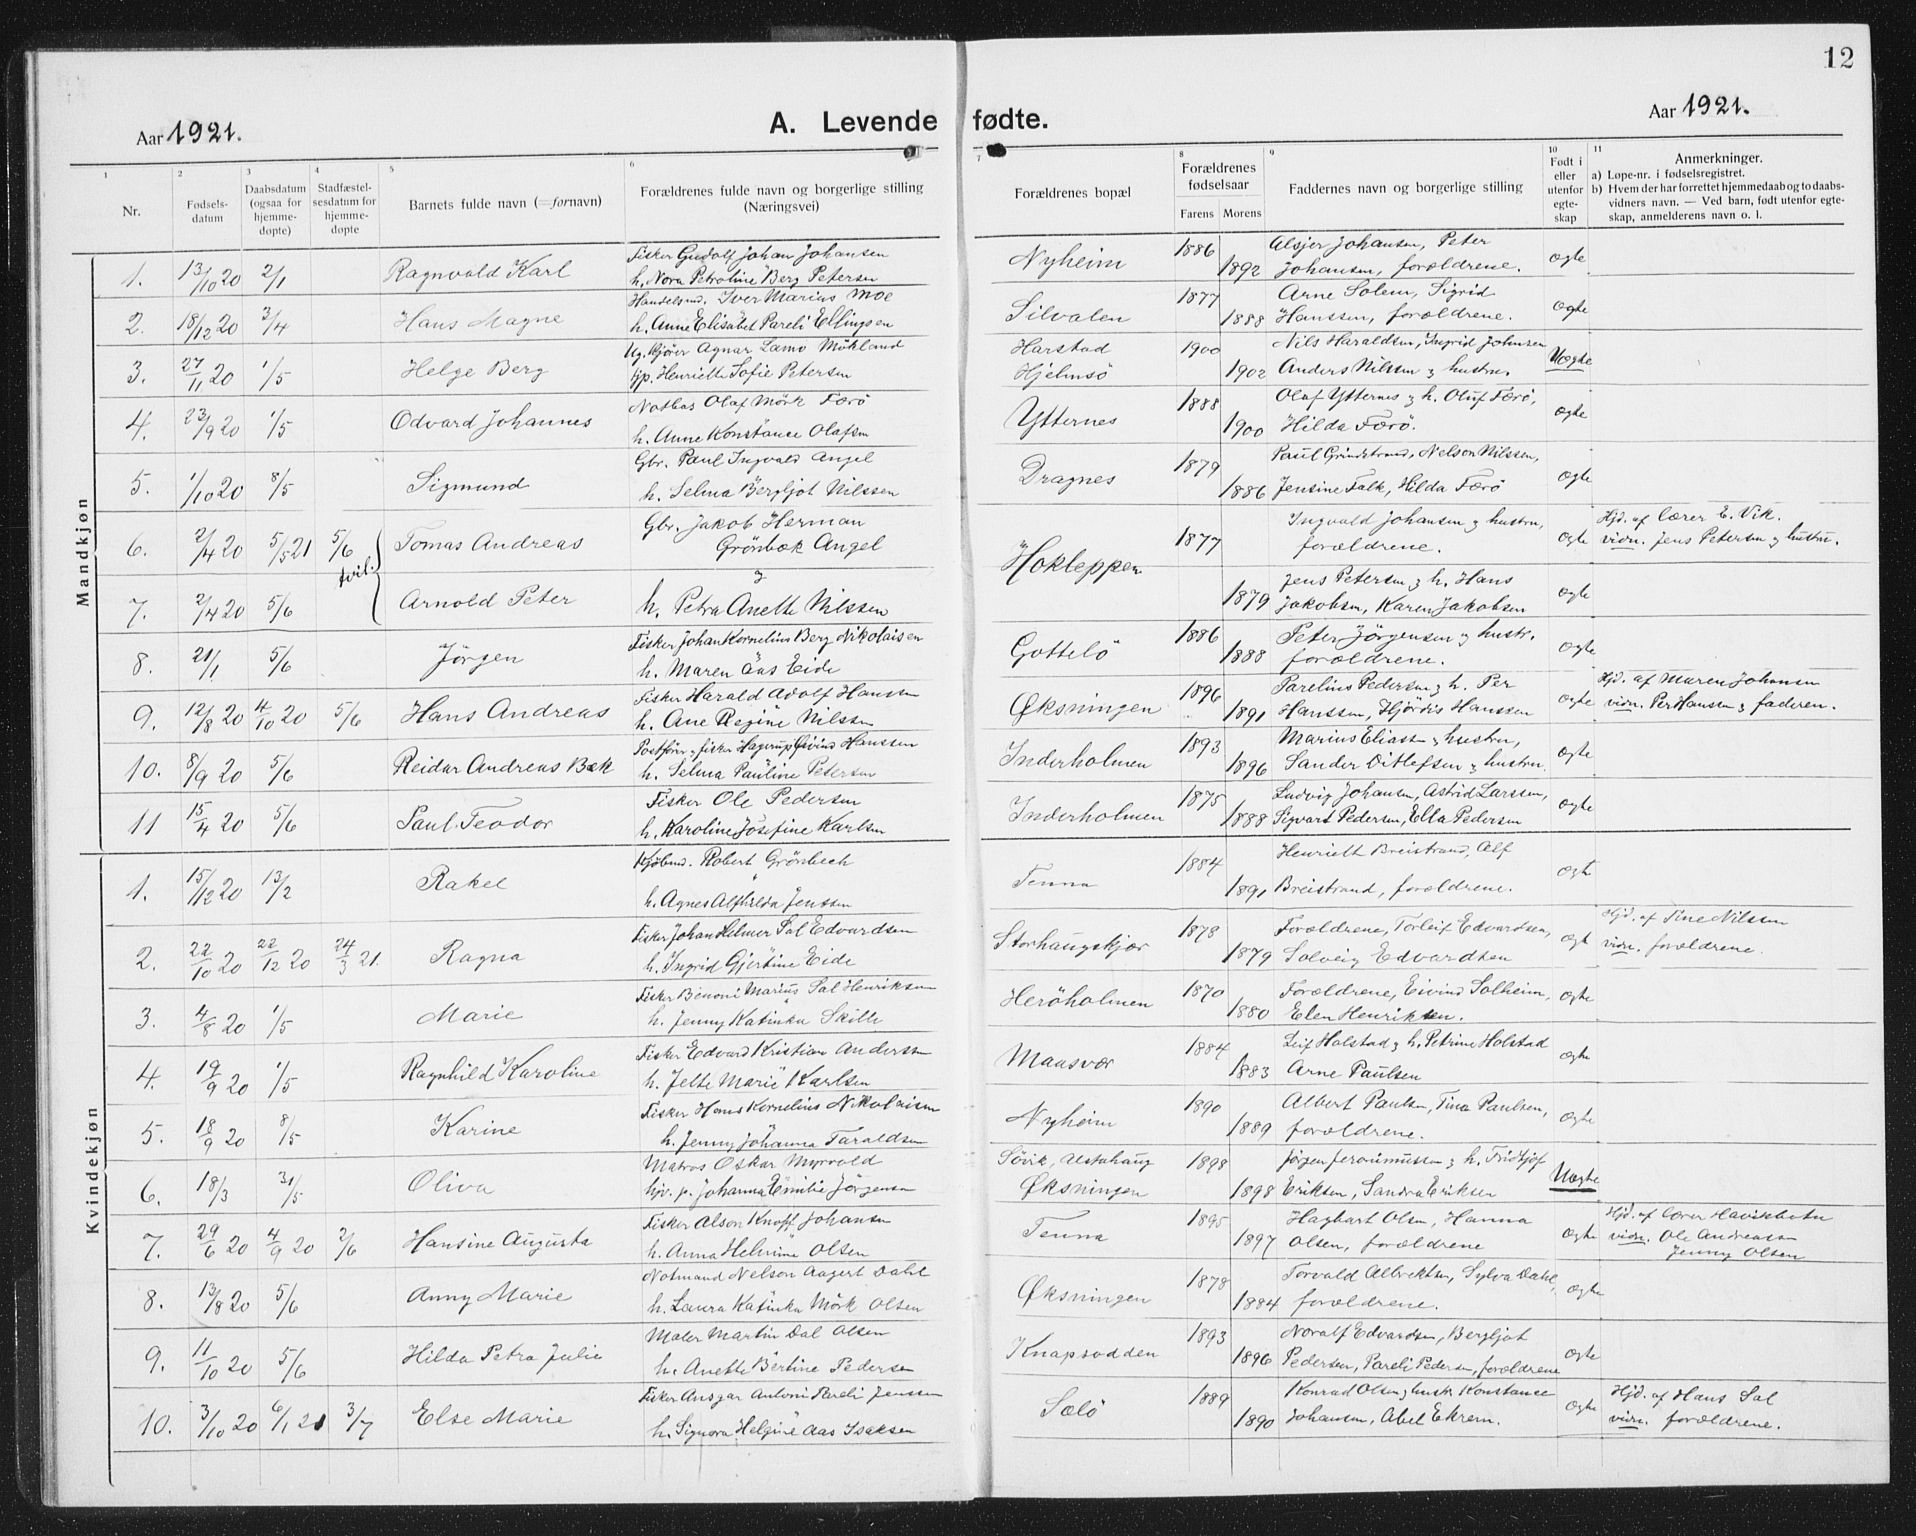 12
Aar 1921.
A. Levende fødte.
Aar 1921.
1 2 3 4 5 6 7 8 9 10 11
Nr.
Fødsels-
datum
Daabsdatum
(ogsaa for
hjemme-
døpte)
Stadfæstel-
sesdatum for
hjemme-
døpte
Barnets fulde navn (=fornavn)
Forældrenes fulde navn og borgerlige stilling
(Næringsvei)
Forældrenes bopæl
Forældrenes
fødselsaar
Farens Morens
Faddernes navn og borgerlige stilling
Født i
eller
utenfor
egte-
skap
Anmerkninger.
a) Løpe-nr. i fødselsregistret.
b) Hvem der har forrettet hjemmedaab og to daabs-
vidners navn. — Ved barn, født utenfor egte-
skap, anmelderens navn o. l.
Mandkjøn
Fisker Gudolf Johan Johansen 1886 Alsjer Johansen, Peter
1. 13/10 20 2/1 Ragnvald Karl h. Nora Petroline Berg Petersen Nyheim 1892 Johansen, forældrene. ægte
Handelsmd. Iver Marius Moe 1877 Arne Solem, Sigrid
2. 18/12 20 3/4 Hans Magne h. Anne Elisabet Pareli Ellingsen Silvalen 1888 Hanssen, forældrene. ægte
Ug. Agnar Lamo Mökland Harstad 1900 Nils Haraldsen, Ingrid Johnsen
3. 27/11 20 1/5 Helge Berg Henriette Sofie Petersen Hjelmsö 1902 Anders Nilssen & hustru. Uægte
Notbas Olaf Mörk Færö 1888 Olaf Ytternes & h. Oluf Færö,
4. 23/9 20 1/5 Odvard Johannes h. Anne Konstance Olafsen Ytternes 1900 Hilda Færö. ægte
Gbr. Paul Ingvald Angel 1879 Paul Grindstrand, Nelson Nilssen,
5. 1/10 20 8/5 Sigmund h. Selma Bergljot Nilssen Dragnes 1886 Jensine Falk, Hilda Færö ægte
Gbr. Jakob Herman Ingvald Johansen & hustru, Hjd. af Lærer E. Vik.
6. 2/4 20 5/5 21 5/6 Tomas Andreas Grönbæk Angel 1877 forældrene. ægte vidn. Jens Petersen & hustru.
tvil. & Hokleppen Jens Petersen & h. Hans
7. 2/4 20 5/6 Arnold Peter h. Petra Anette Nilssen 1879 Jakobsen, Karen Jakobsen ægte
Fisker Johan Kornelius Berg Nikolaisen 1886 Peter Jörgensen & hustr.
8. 21/1 5/6 Jörgen h. Maren Aas Eide Gottelö 1888 forældrene. ægte
Fisker Harald Adolf Hanssen 1896 Parelius Pedersen & h. Per Hjd. af Maren Johansen
9. 12/8 20 4/10 20 5/6 Hans Andreas h. Ane Regine Nilssen Øksningen 1891 Hanssen, Hjördis Hanssen ægte vidn. Per Hansen & faderen.
Postförer & fisker Hagerup Eivind Hanssen 1893 Marius Eliassen & hustru,
10. 8/9 20 5/6 Reidar Andreas Bæk h. Selma Pauline Petersen Inderholmen 1896 Sander Ditlefsen & hustru. ægte
Fisker Ole Pedersen 1875 Ludvig Johansen, Astrid Larssen,
11 15/4 20 5/6 Paul Teodor h. Karoline Josefine Karlsen Inderholmen 1888 Sigvart Pedersen, Ella Pedersen ægte
Kvindekjøn
Kjöbmd. Robert Grönbech 1884 Henriette Breistrand, Alf
1. 15/12 20 13/2 Rakel h. Agnes Alfhilda Jenssen Tenna 1891 Breistrand, forældrene. ægte
Fisker Johan Helmer Sal Edvardsen 1878 Forældrene, Torleif Edvardsen, Hjd. af Tine Nilssen
2. 22/10 20 22/12 20 24/3 21. Ragna h. Ingrid Gjertine Eide Storhaugskjær 1879 Solveig Edvardsen ægte vidn. forældrene.
Fisker Benoni Marius Sal Henriksen 1870 Forældrene, Eivind Solheim,
3. 4/8 20 1/5 Marie h. Jenny Katinka Skille Heröholmen 1880 Elen Henriksen. ægte
Fisker Edvard Kristian Andersen 1884 Leif Holstad & h. Petrine Holstad
4. 19/9 20 1/5 Ragnhild Karoline h. Jette Marie Karlsen Maasvær 1883 Arne Paulsen ægte
Fisker Hans Kornelius Nikolaisen 1890 Albert Paulsen, Tina Paulsen,
5. 18/9 20 8/15 Karine h. Jenny Johanna Taraldsen Nyheim 1889 forældrene. ægte
Matros Oskar Myrvold Sövik, Alstahaug 1898 Jörgen Jeronimussen & h. Fridtjof
6. 18/3 31/5 Oliva hjv. p. Johanna Emilie Jörgensen Øksningen 1898 Eriksen, Sandra Eriksen Uægte
Fisker Alson Knoff Johansen 1895 Hagbart Olsen, Hanna Hjd. af Lærer Havikbotn
7. 29/6 20 4/9 20 2/6 Hansine Augusta h. Anna Helmine Olsen Tenna 1897 Olsen, forældrene ægte vidn. Ole Andreassen
Jenny Olsen
Notmand Nelson Aagert Dahl 1878 Torvald Albrektsen, Sylva Dahl,
8. 13/8 20 5/6 Anny Marie h. Laura Katinka Mörk Olsen Øksningen 1884 forældrene. ægte
Maler Martin Dal Olsen 1893 Noralf Edvardsen, Bergljot
9. 11/10 20 5/6 Hilda Petra Julie h. Anette Bertine Pedersen Knapsodden 1896 Pedersen, Pareli Pedersen, forældrene ægte
Fisker Ansgar Antoni Pareli Jenssen 1889 Konrad Olsen & hustr. Konstance Hjd. af Hans Sal
10. 3/10 20 6/1 21 3/7 Else Marie h. Signora Helgine Aas Isaksen Sælö 1890 Johansen, Abel Ekrem. ægte vidn. forældrene.